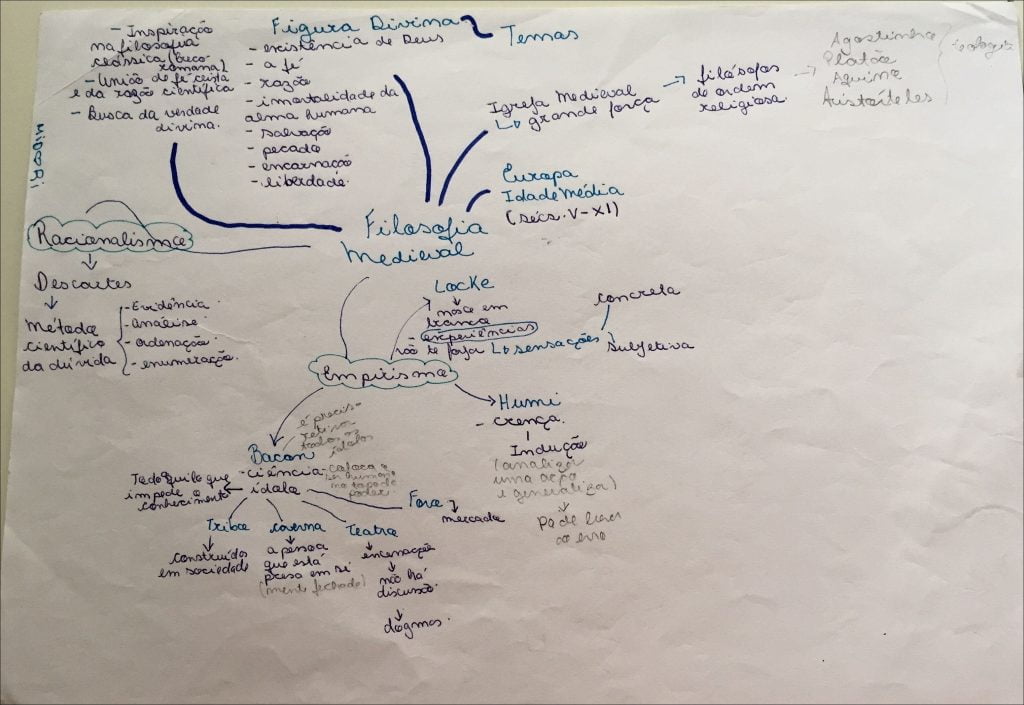 - Inspiração
na filosofia
clássica (greco
romana)
- União da fé cristã
e da razão científica
- Busca da verdade
divina.
Figura Divina
- existência de Deus
- a fé
- razão
- imortalidade da
alma humana
- salvação
- pecado
- encarnação
- liberdade.
Temas
Igreja Medieval
↳ grande força
→ filósofos
de ordem
religiosa.
→ Agostinho
Platão
Aquino
Aristóteles
teologia
Europa
Idade Média
(sécs. V-XI)
MIDORI
Filosofia
Medieval
Racionalismo
Descartes
método
científico
da dúvida
- Evidência
- análise
- ordenação
- enumeração.
Locke
nasce em
branco
- experiências
vão te forjar
↳ sensações
concreta
subjetiva
Empirismo
Humi
- crença.
Indução
(analiza
uma ação
e generaliza)
pode levar
ao erro
é preciso
retirar
todos os
ídolos
Bacon
- ciência - coloca o
ser humano
no topo do
poder.
ídolo
Tudo aquilo que
impede o
conhecimento
Tribo
construídos
em sociedade
caverna
a pessoa
que está
presa em si
(mente fechada)
Teatro
encenação
não há
discussão
dogmas.
Foro
mercado